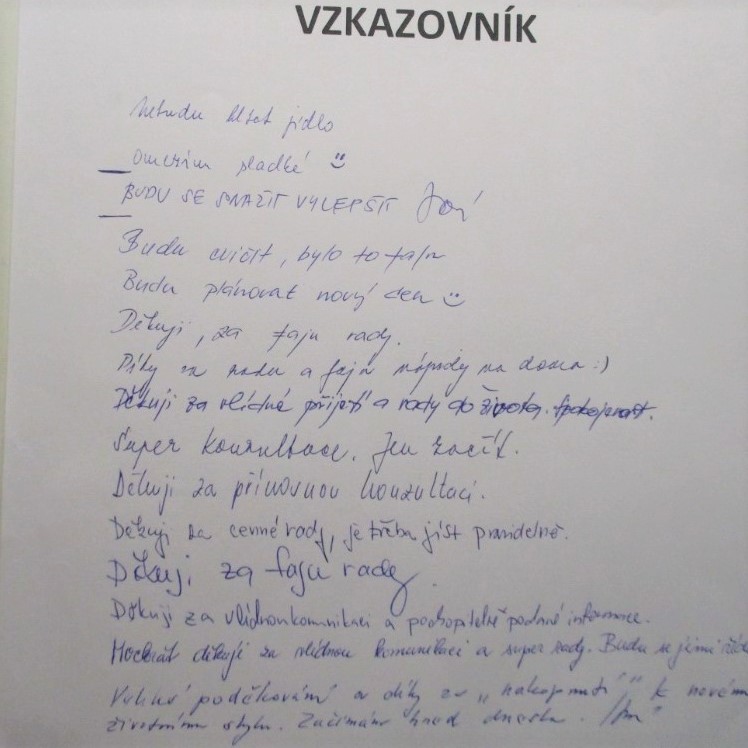 VZKAZOVNÍK
Nebudu hltat jídlo
Omezím sladké
BUDU SE SNAŽIT VYLEPŠIT
Budu cvičit, bylo to fajn
Budu plánovat nový den
Děkuji, za fajn rady.
Díky za radu a fajn nápady na doma :)
Děkuji za vlídné přijetí a rady do života. Spokojenost.
Super konzultace. Jen začít.
Děkuji za přínosnou konzultaci.
Děkuji za cenné rady, je třeba jíst pravidelně.
Děkuji za fajn rady.
Děkuji za vlídnou komunikaci a pochopitelně podané informace.
Mockrát děkuji za vlídnou komunikaci a super rady. Budu se jimi
Velké poděkování a díky za "nakopnutí" k novému
životnímu stylu. Začínám hned dneska.